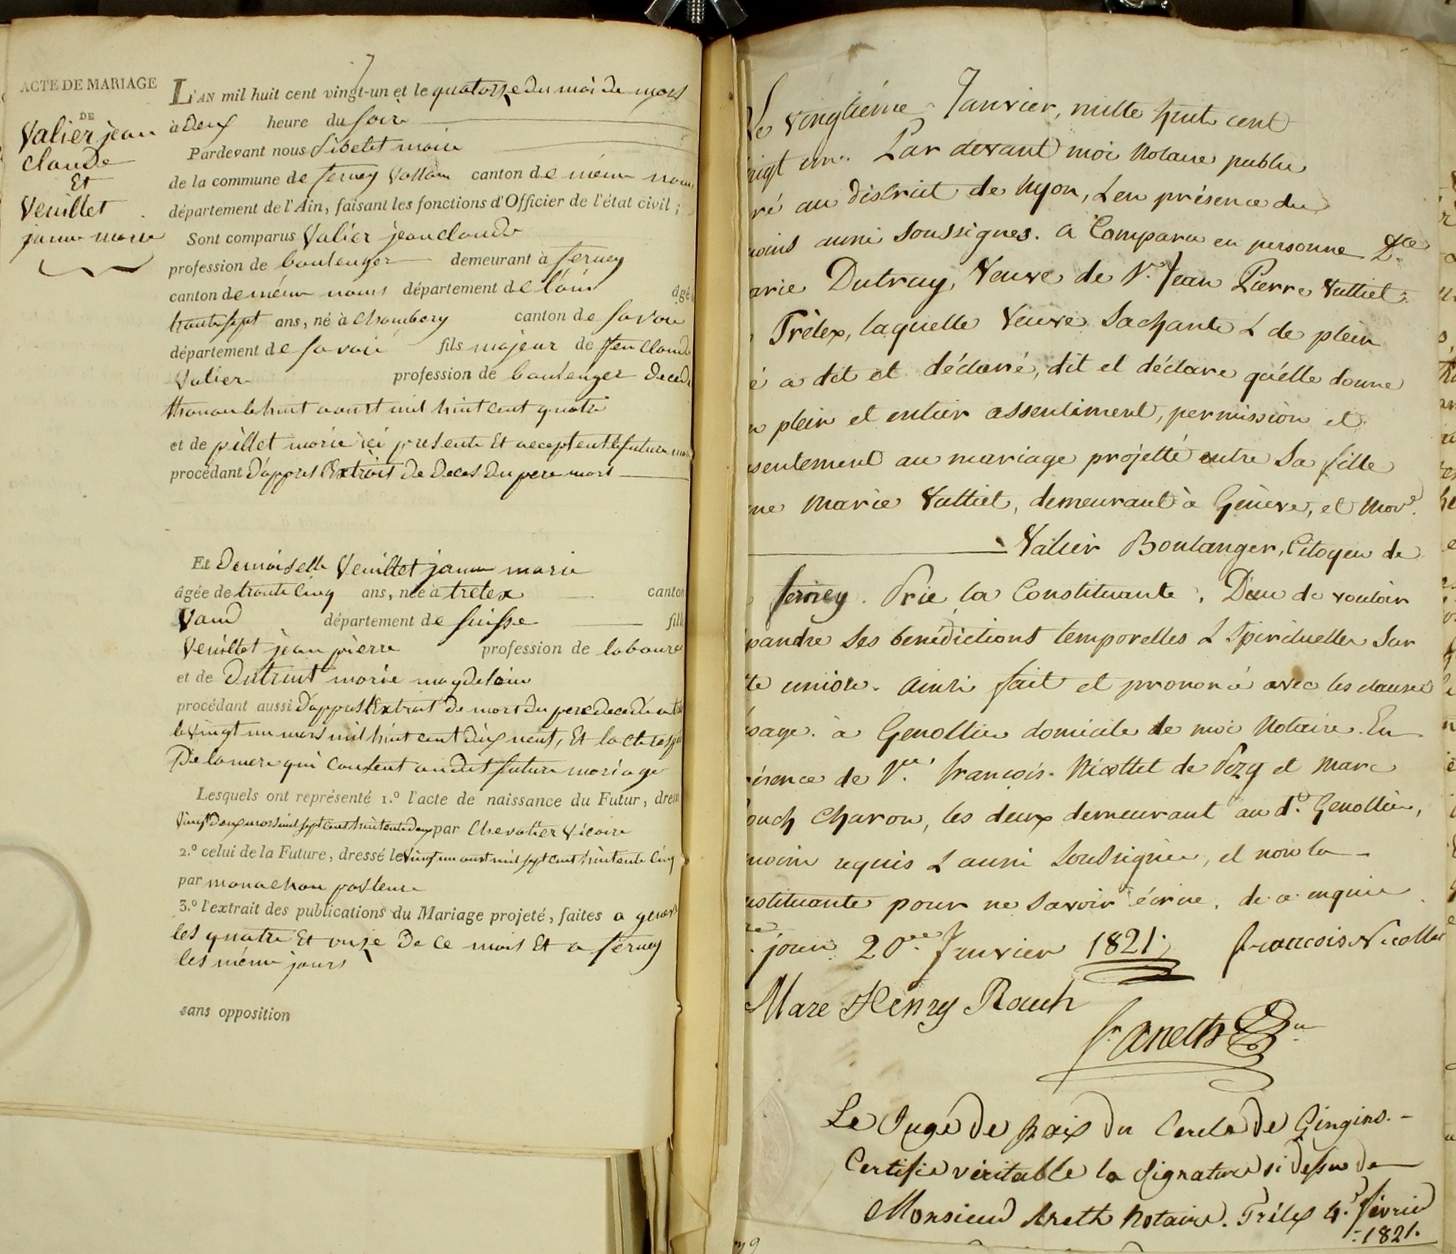 7
ACTE DE MARIAGE
DE
Valier jean
claude
Et
Veuillet
janne marie
L'AN mil huit cent vingt-un et le quatorze du moi de mars
à deux heure du soir
Pardevant nous maire
de la commune de ferney Voltaire canton de même nom
département de l'Ain, faisant les fonctions d'Officier de l'état civil;
Sont comparus Valier jean claude
profession de boulenger demeurant à ferney
canton de même nom département de l'ain âgé
trente sept ans, né à Chambery canton de Savoie
département de Savoie fils majeur de feu Claude
Valier profession de boulenger decede
thonon le huit aoust mil huit cent quatre
et de pillet marie ici presente Et
procédant dappres l'Extrait de deces du pere mort
Et Demoiselle Veuillet janne marie
âgée de trente Cinq ans, née à trelex canton
Vaud département de suisse fille
Veuillet jean pierre profession de laboureur
et de Dutruit marie magdelaine
procédant aussi dappres l'Extrait de mort du pere decede a
le vingt un mars mil huit cent dix neuf, Et lacte
De la mere qui Consent au dit futur mariage
Lesquels ont représenté 1.º l'acte de naissance du Futur, dressé
vingt deux mars mil sept cent huitante deux par Chevalier Vicaire
2.º celui de la Future, dressé le vingt un aoust mil sept cent huitante Cinq
par monachon pasteur
3.º l'extrait des publications du Mariage projeté, faites a
les quatre Et onze De Ce mois Et a ferney
les même jours
sans opposition
Le vingtième Janvier, mille huit cent
vingt un. Par devant moi Notaire public
ré au district de Nyon, & en présence des
moins aussi soussignés. a Comparu en personne
arie Dutruy, Veuve de Jean Pierre Vulliet
Trélex, laquelle Veuve Sachante & de plein
é a dit et déclaré, dit et déclare qu'elle donne
n plein et entier assentiment, permission et
sentement au mariage projetté entre sa fille
ne Marie Vulliet, demeurant à Genève, et Mon.r
Valier Boulanger, Citoyen de
ferney. Prie la Constituante, Dieu de vouloir
pandre ses bénédictions temporelles & Spirituelles Sur
te union. Ainsi fait et prononcé avec les clauses
usage. à Genollier domicile de moi Notaire. En
résence de François Nicollet de Vizy et Marc
ouch Charon, les deux demeurant au d.t Genollier,
moins requis & aussi Soussignés, et non la
nstituante pour ne savoir écrire, de ce enquise
jour 20.me Janvier 1821. francois Nicollet
Marc Henry Rouch
Le Juge de paix du Cercle de Gingins
Certifie véritable la signature ci dessus de
Monsieur Areth Notaire. Trélex 4.e février
1821.